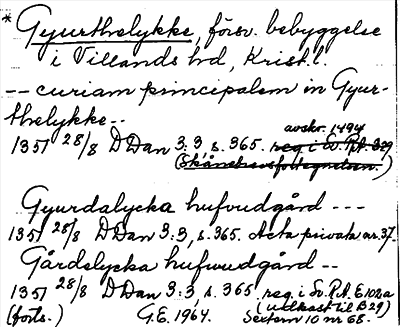 * Gyurthelykke, försv. bebyggelse
i Villands hd, Krist. l.
-- curiam principalem in Gyur-
thelykke --
avskr. 1494
1351 28/8 DDan 3:3, s. 365. reg i Sv. P.A. 329
(Skånebrevsförtegnelsen.)
Gyurdalycka hufvudgård ---
1351 28/8 DDan 3:3, s. 365. Acta privata nr. 37.
Gårdslycka hufwudgård --
1351 28/8 DDan 3:3, s. 365 reg. i Sv. P.A. E 102a
(udkast til B 29)
(forts.) G.E. 1964. Sextern 10 nr 68.